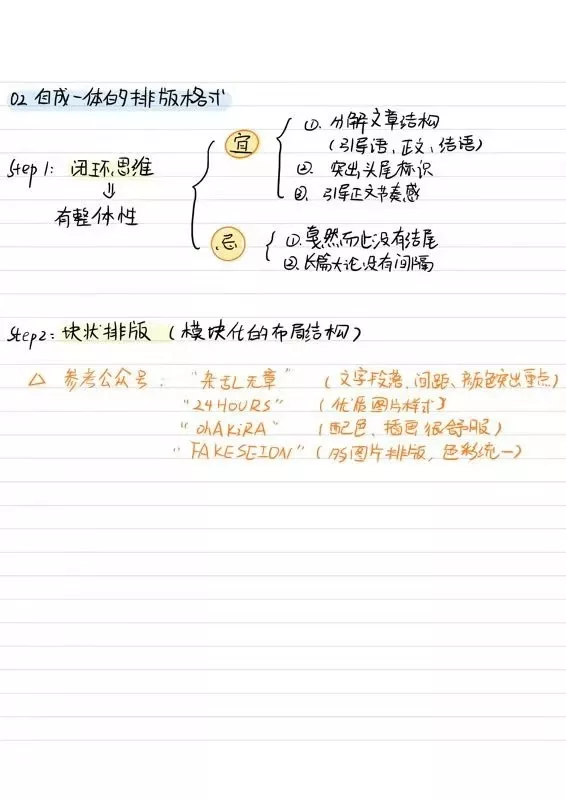 02 自成一体的排版格式
Step 1: 闭环思维
⇓
有整体性
宜
①. 分解文章结构
(引导语、正文、结语)
②. 突出头尾标识
③. 引导正文节奏感
忌
①. 戛然而止没有结尾
②. 长篇大论没有间隔
Step2: 块状排版 (模块化的布局结构)
△ 参考公众号: "杂乱无章" (文字段落、间距、颜色突出重点)
"24HOURS" (优质图片样式)
"OhAKiRA" (配色、插图很舒服)
"FAKESEION" (PS图片排版, 色彩统一)